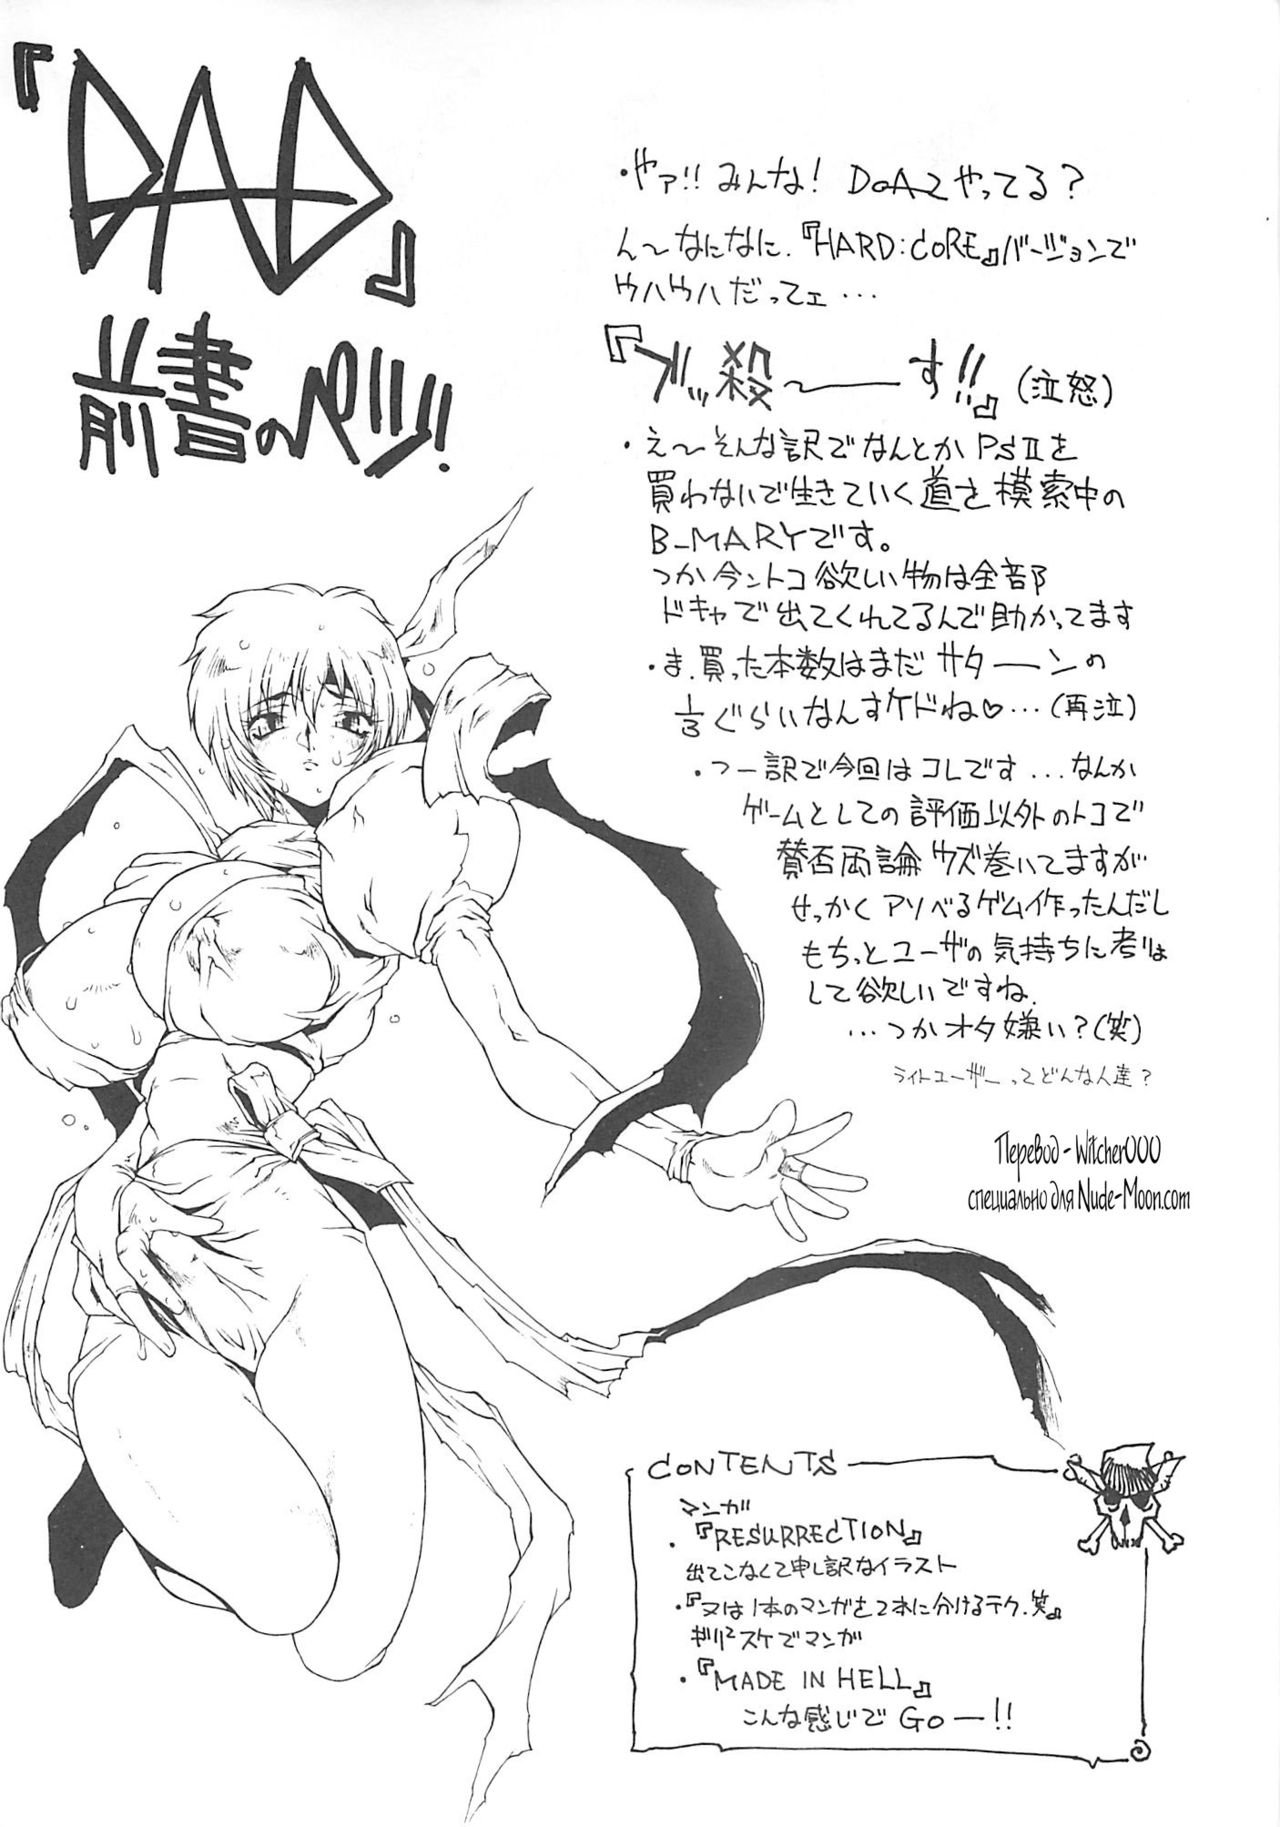 『DAD』
前書のページ!
・やァ!!みんな! DoA2やってる?
ん〜なになに.『HARD:CORE』バージョンで
ウハウハだってェ…
『ブッ殺〜――す!!』(泣怒)
・え〜そんな訳でなんとかPSⅡを
買わないで生きていく道を模索中の
B-MARYです。
つか今ントコ欲しい物は全部
ドキャで出てくれてるんで助かってます
・ま.買った本数はまだサターンの
⅓ぐらいなんすケドね♡…(再泣)
・つー訳で今回はコレです…なんか
ゲームとしての評価以外のトコで
賛否両論ウズ巻いてますが
せっかくアソべるゲム作ったんだし
もちっとユーザの気持ちに考慮
して欲しいですね.
…つかオタ嫌い?(笑)
ライトユーザーってどんな人達?
Перевод - Witcher000
специально для Nude-Moon.com
CONTENTS
マンガ
・『RESURRECTION』
出てこなくて申し訳なイラスト
・『又は1本のマンガを2本に分けるテク.笑』
ギリ²スケでマンガ
・『MADE IN HELL』
こんな感じで GO―!!